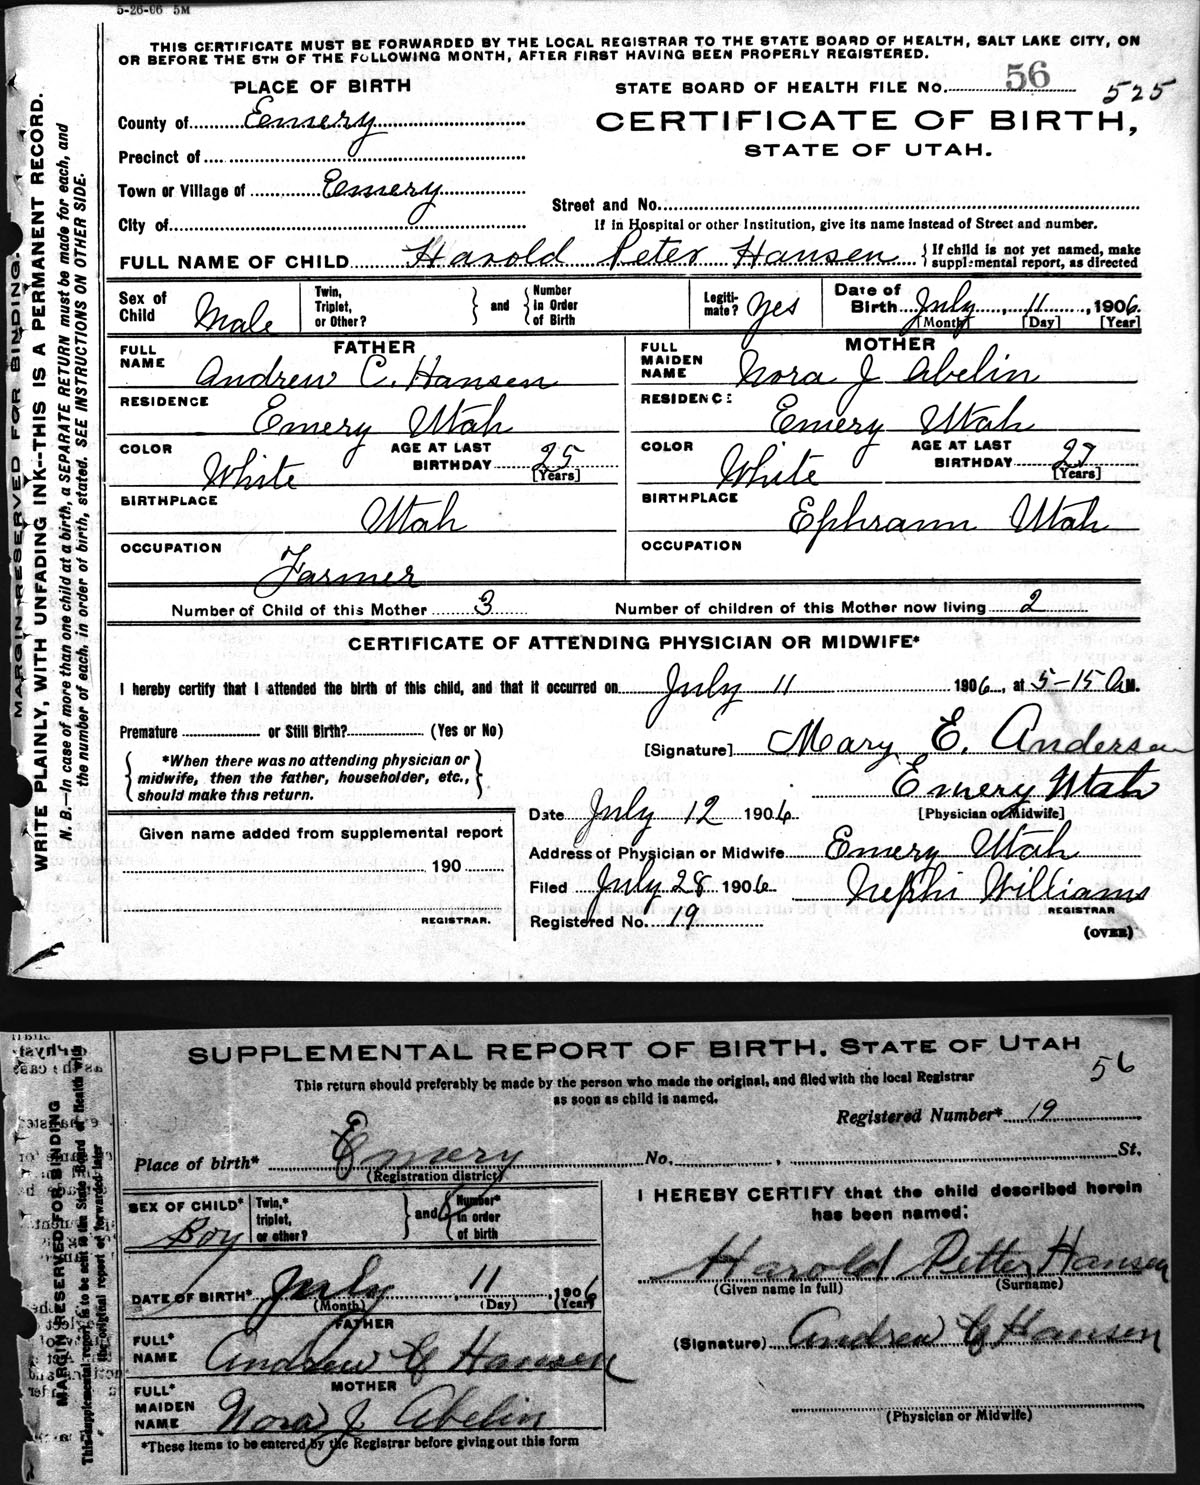 5-26-06 5M
THIS CERTIFICATE MUST BE FORWARDED BY THE LOCAL REGISTRAR TO THE STATE BOARD OF HEALTH, SALT LAKE CITY, ON
OR BEFORE THE 5TH OF THE FOLLOWING MONTH, AFTER FIRST HAVING BEEN PROPERLY REGISTERED.
PLACE OF BIRTH
STATE BOARD OF HEALTH FILE NO. 56 525
County of Emery
CERTIFICATE OF BIRTH,
STATE OF UTAH.
Precinct of
Town or Village of Emery
Street and No.
City of
If in Hospital or other Institution, give its name instead of Street and number.
FULL NAME OF CHILD Harold Peter Hansen {If child is not yet named, make supplemental report, as directed
Sex of Child Male Twin, Triplet, or Other? } and { Number in Order of Birth Legiti-mate? Yes Date of Birth July 11, 1906
[Month] [Day] [Year]
FATHER
FULL NAME Andrew C. Hansen
RESIDENCE Emery Utah
COLOR White AGE AT LAST BIRTHDAY 25 [Years]
BIRTHPLACE Utah
OCCUPATION Farmer
MOTHER
FULL MAIDEN NAME Nora J Abelin
RESIDENCE Emery Utah
COLOR White AGE AT LAST BIRTHDAY 27 [Years]
BIRTHPLACE Ephraim Utah
OCCUPATION
Number of Child of this Mother 3 Number of children of this Mother now living 2
CERTIFICATE OF ATTENDING PHYSICIAN OR MIDWIFE*
I hereby certify that I attended the birth of this child, and that it occurred on July 11 1906, at 5-15 A M.
Premature or Still Birth? (Yes or No)
[Signature] Mary E. Andersen
{ *When there was no attending physician or
midwife, then the father, householder, etc.,
should make this return. }
Emery Utah
[Physician or Midwife]
Date July 12 1906
Address of Physician or Midwife Emery Utah
Filed July 28 1906 Nephi Williams
REGISTRAR
Registered No. 19
(OVER)
Given name added from supplemental report
190
REGISTRAR.
MARGIN RESERVED FOR BINDING.
WRITE PLAINLY, WITH UNFADING INK--THIS IS A PERMANENT RECORD.
N. B.—In case of more than one child at a birth, a SEPARATE RETURN must be made for each, and
the number of each, in order of birth, stated. SEE INSTRUCTIONS ON OTHER SIDE.
SUPPLEMENTAL REPORT OF BIRTH, STATE OF UTAH
56
This return should preferably be made by the person who made the original, and filed with the local Registrar
as soon as child is named.
Registered Number* 19
Place of birth* Emery No. , St.
(Registration district)
SEX OF CHILD* Boy Twin,* triplet, or other? } and { Number* in order of birth
DATE OF BIRTH* July 11, 1906
(Month) (Day) (Year)
FATHER
FULL* NAME Andrew C Hansen
MOTHER
FULL* MAIDEN NAME Nora J Abelin
*These items to be entered by the Registrar before giving out this form
I HEREBY CERTIFY that the child described herein
has been named:
Harold Petter Hansen
(Given name in full) (Surname)
(Signature) Andrew C Hansen
(Physician or Midwife)
MARGIN RESERVED FOR BINDING
This supplemental report is to be sent to the State Board of Health with
the original report of forwarded later